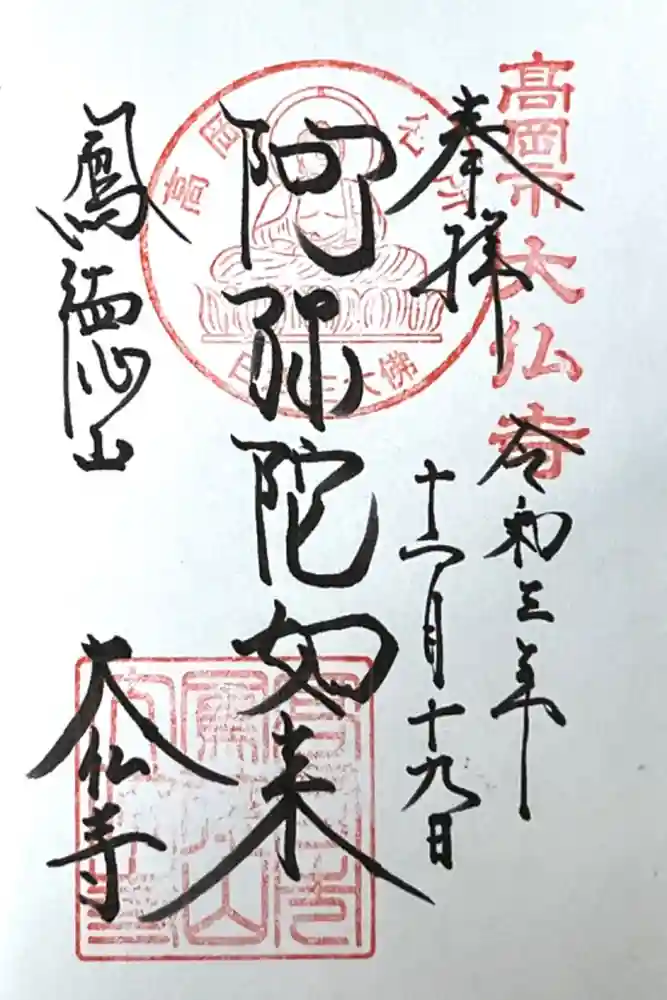 髙岡市大仏寺
奉拝
令和三年
十一月十九日
阿弥陀如来
高岡
三大佛
鳳徳山
大仏寺